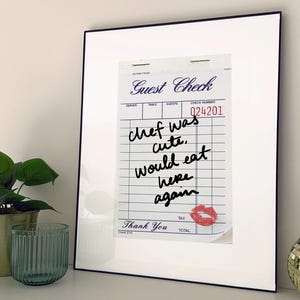 Guest Check
SERVER TABLE GUESTS CHECK NUMBER
024201
chef was
cute.
would eat
here
again
TAX
Thank You TOTAL